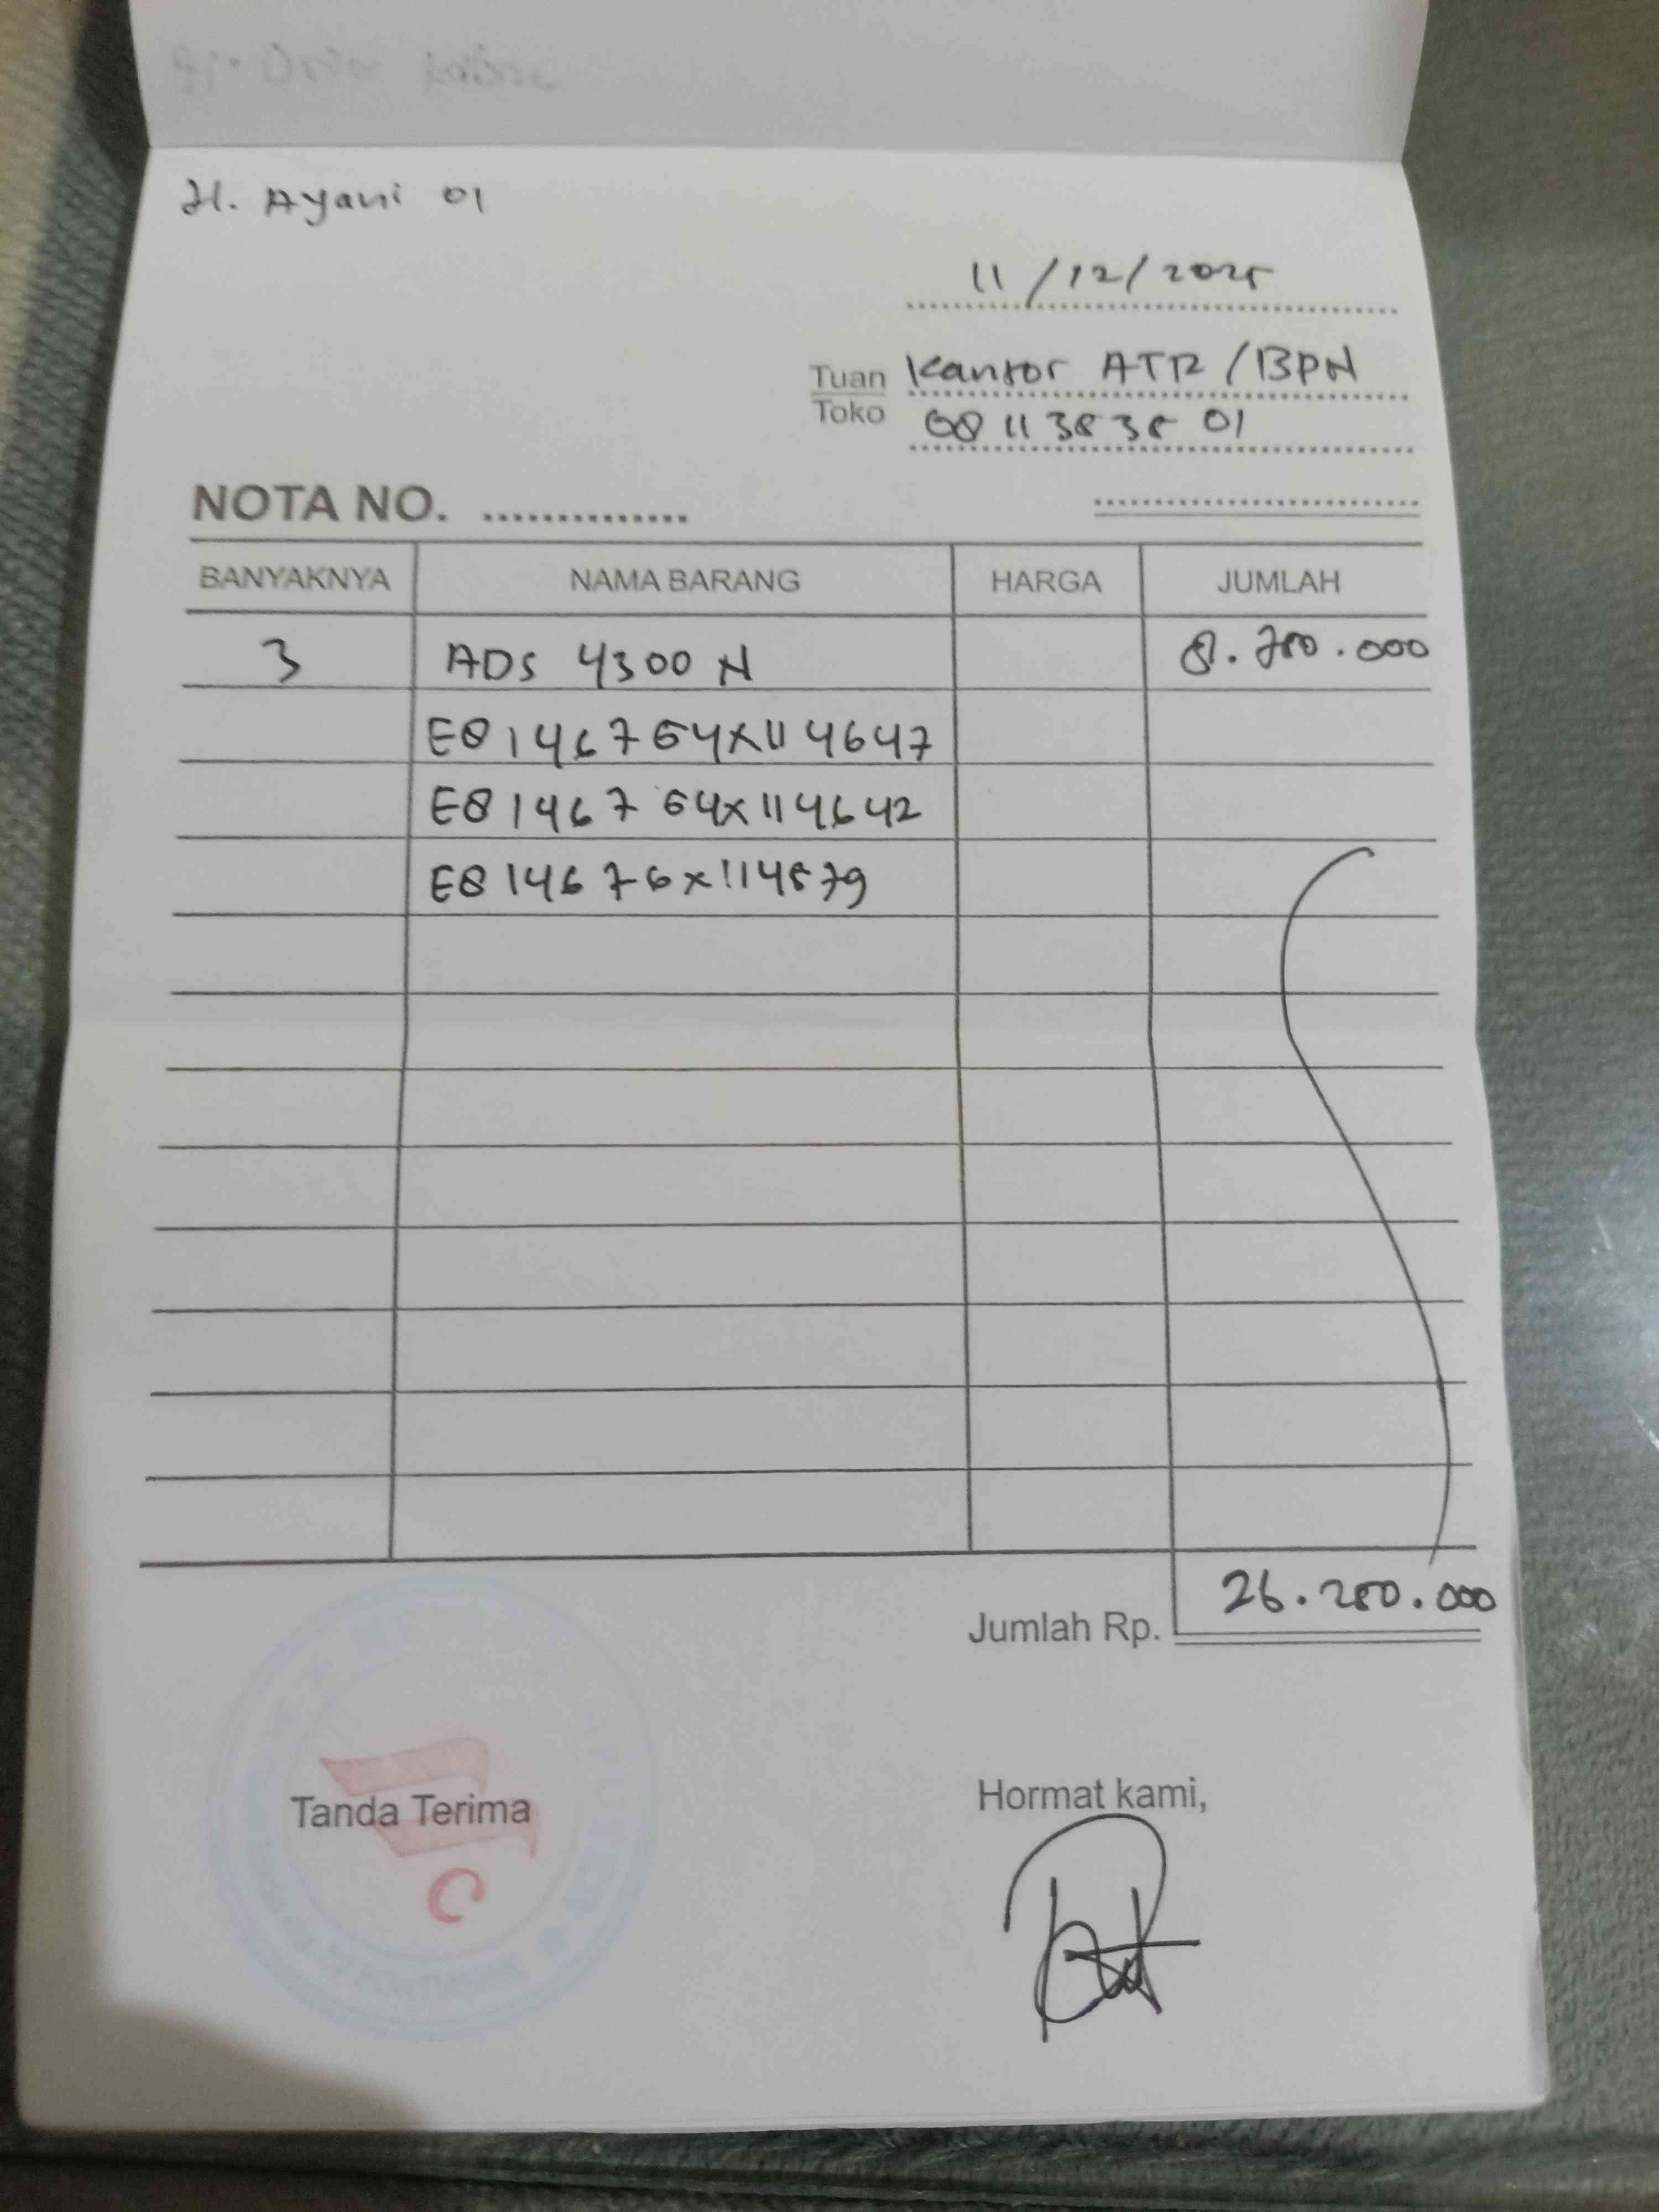 Jl. Ayani 01
11/12/2025
Tuan Kantor ATR/BPN
Toko 0811383801
NOTA NO. ..............
BANYAKNYA NAMA BARANG HARGA JUMLAH
3 ADS 4300 N 8.750.000
E8146764X114647
E8146764X114642
E814676X114579
Jumlah Rp. 26.250.000
Tanda Terima Hormat kami,